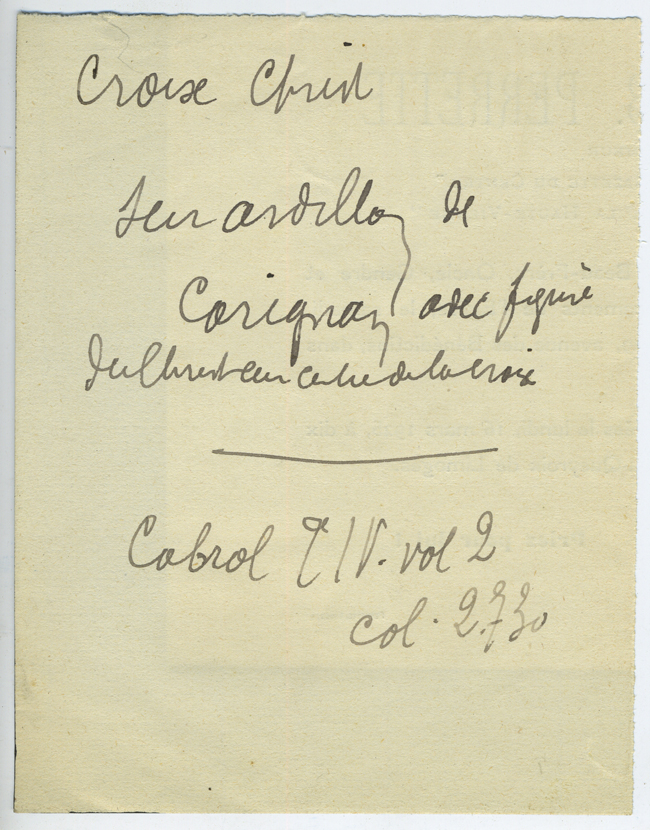 Croix Christ
sur ardillon de
Carignan avec figure
du Christ au centre de la croix
Cabrol T IV. vol 2
col. 2730